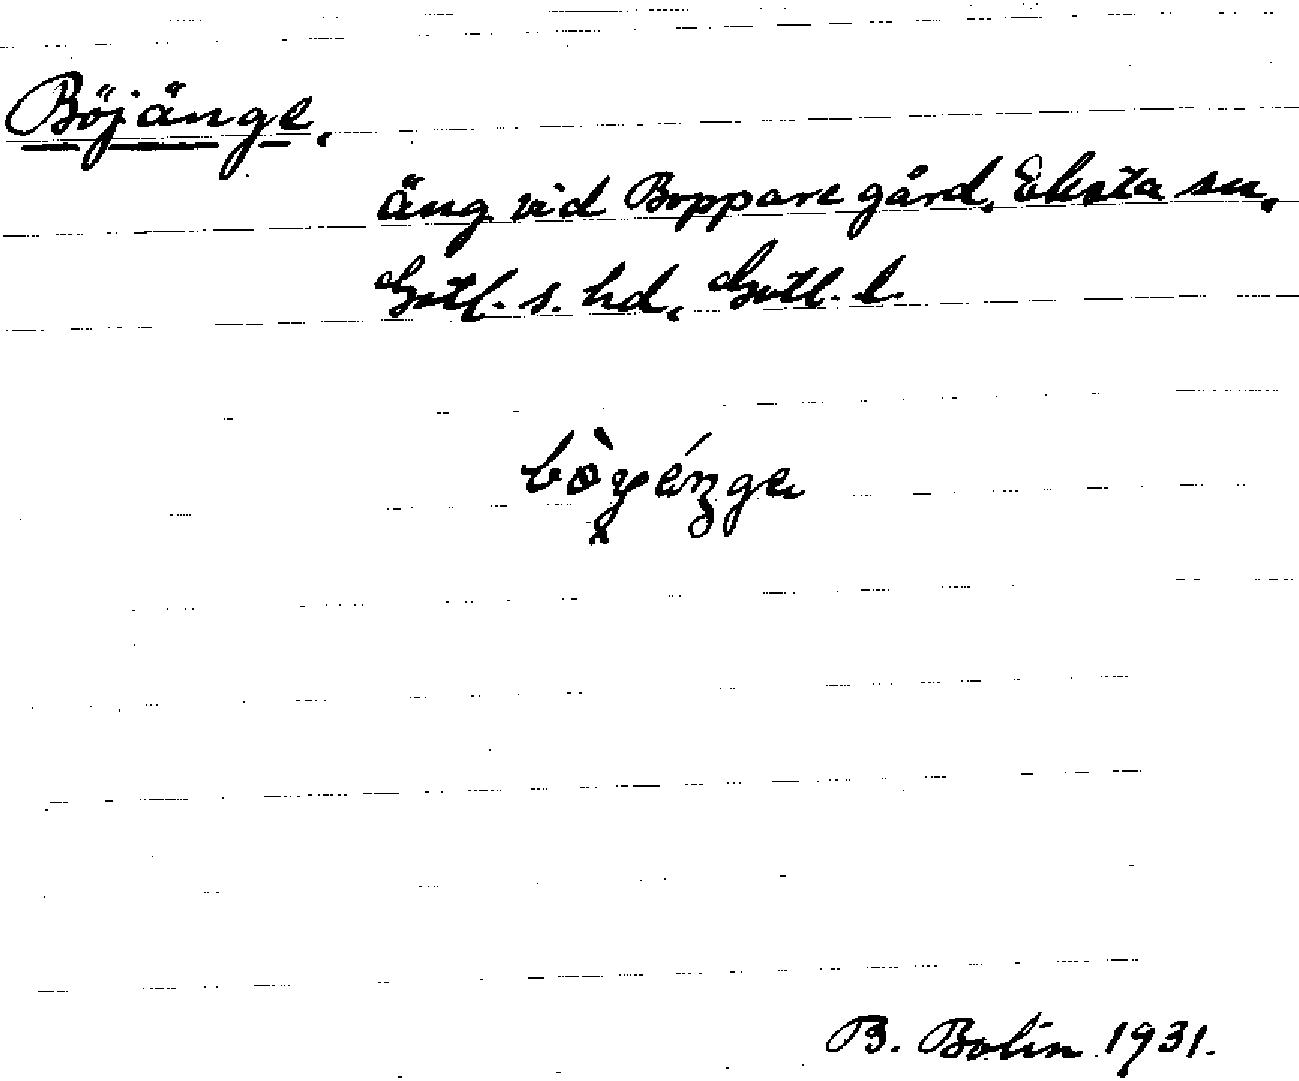 Böjänge.
äng vid Boppare gård, Eksta sn,
Gotl. s. hd, Gotl. l.
B. Bolin 1931.